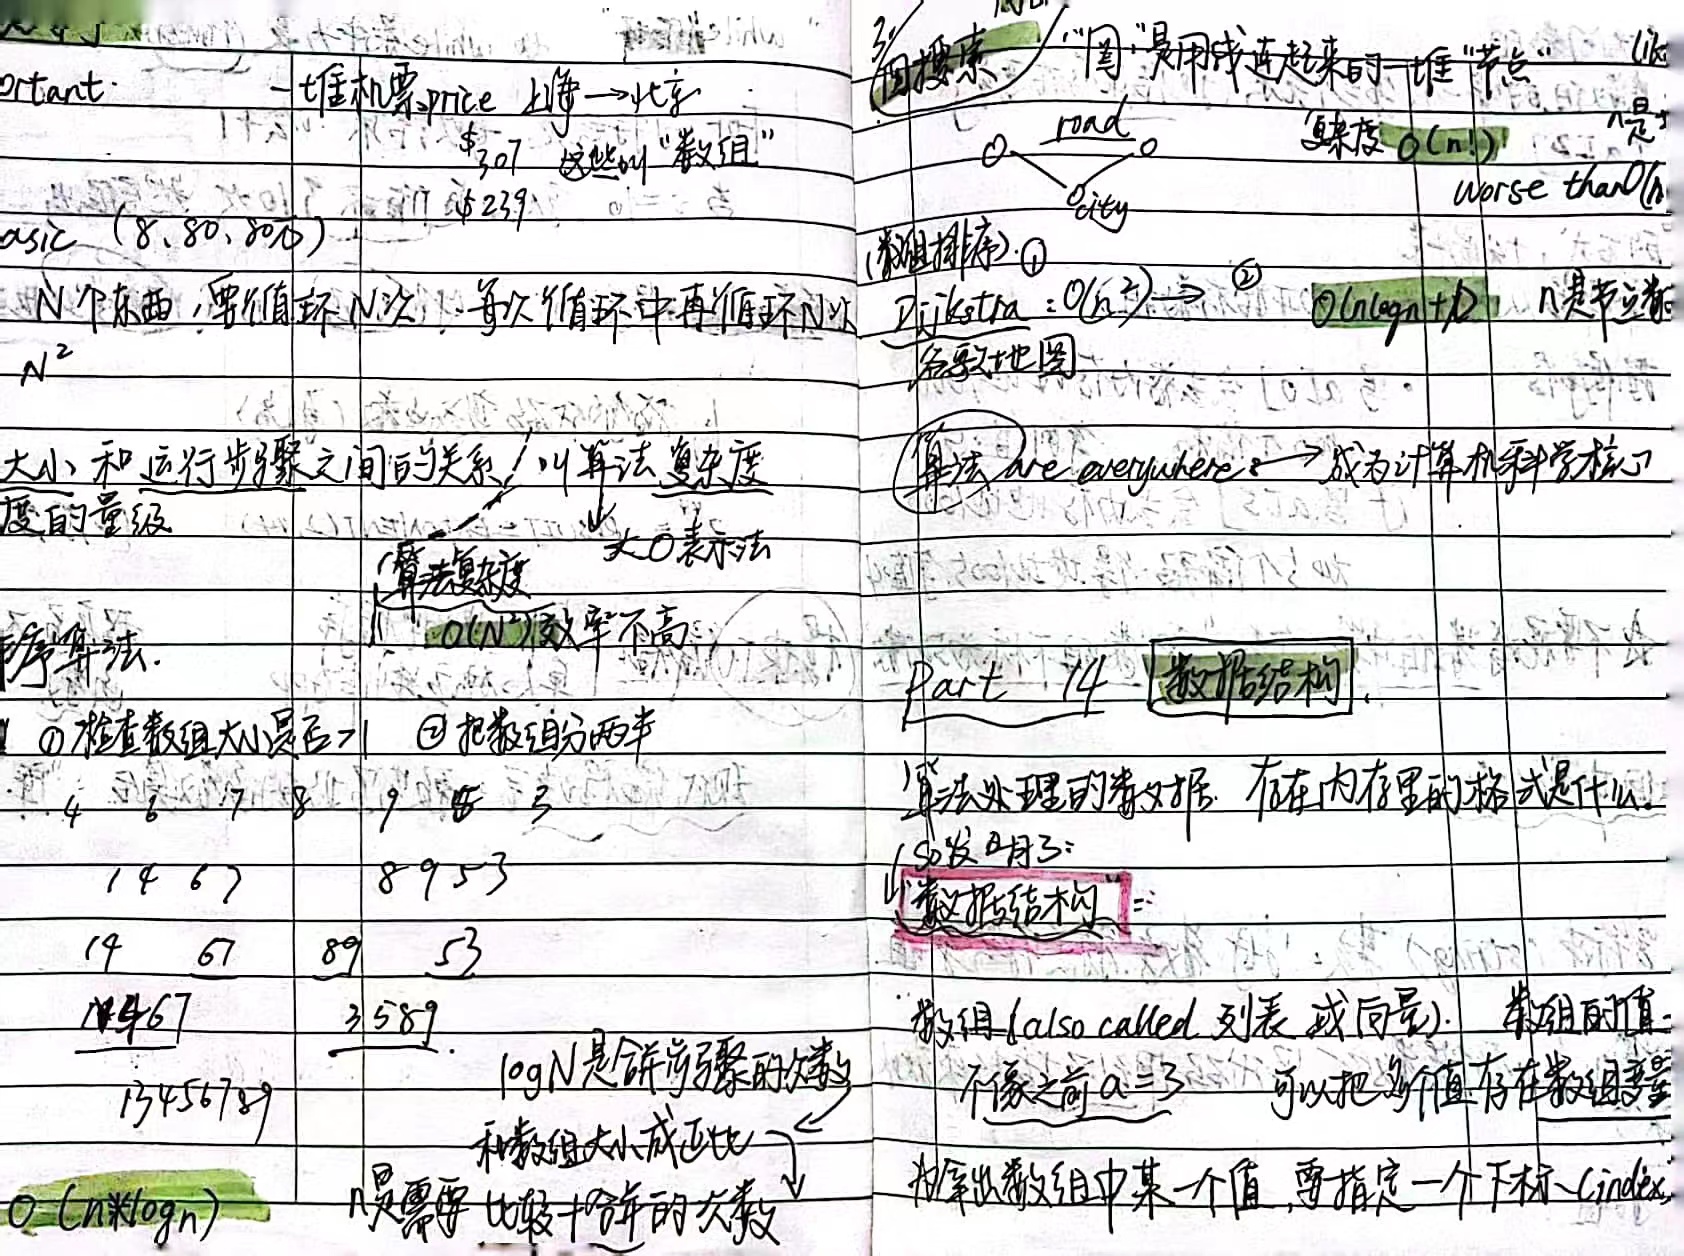 ortant. 一堆机票price 上海→北京
$307 这些叫"数组"
$239
asic (8、80、80万)
N个东西,要循环N次,每次循环中再循环N次
N²
大小和运行步骤之间的关系 叫算法复杂度
度的量级
大O表示法
算法复杂度
O(N²)效率不高
序算法.
①检查数组大小是否>1 ②把数组分两半
4 6 7 8 9 5 3
14 67 8953
14 67 89 53
1467 3589
logN是合并步骤的次数
13456789
和数组大小成正比
O(n*logn) n是需要 比较+合并的次数
3.
图搜索 "图"是用线连起来的一堆"节点" lik
road
复杂度 O(n!) n是
city
worse than O(n
(数组排序).① ②
Dijkstra:O(n²)→ O(nlogn+l) n是节点数
谷歌地图
算法 are everywhere:→成为计算机科学核心
Part 14 数据结构.
算法处理的数据 存在内存里的格式是什么.
So发明了:
"数据结构"
数组(also called 列表或向量). 数组的值
不像之前a=3 可以把多个值存在数组变量
为拿出数组中某一个值,要指定一个下标(index